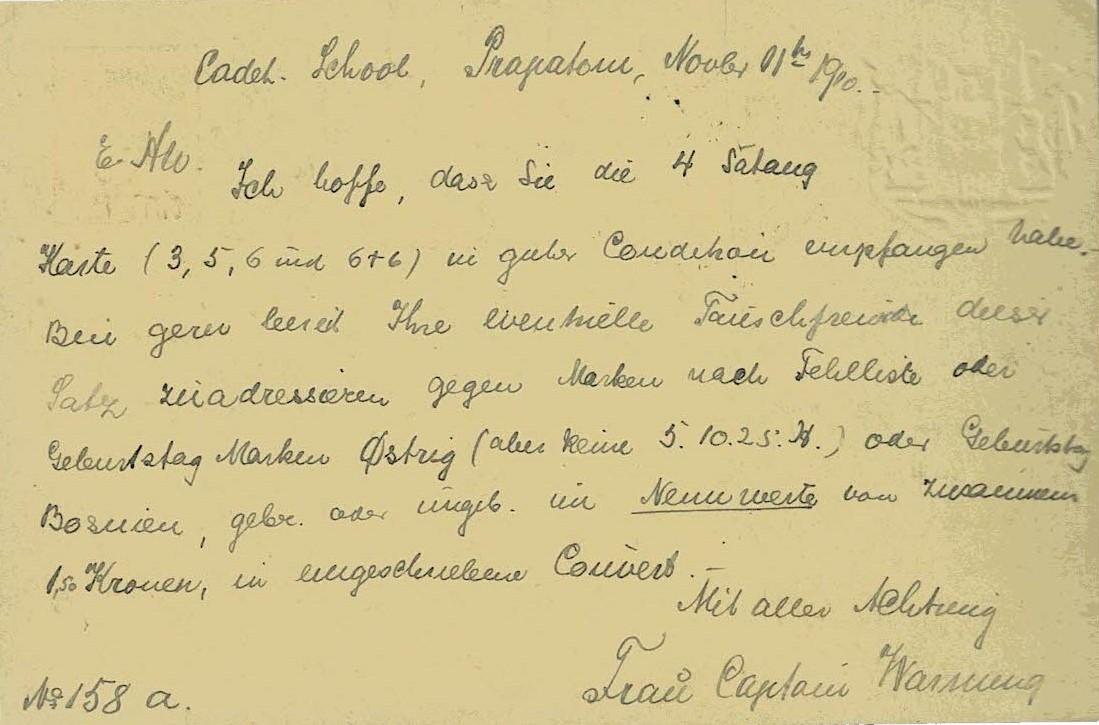 Cadet. School, Prapatom, Novber 11th 1910.
E. Hw.
Ich hoffe, dasz Sie die 4 Satang
Karte (3, 5, 6 und 6+6) in guter Condition empfangen habe.
Bin gern bereit Ihre eventuelle Tauschfreunde dieser
Satz zuadressieren gegen Marken nach Fehlliste oder
Geburtstag Marken Østrig (aber keine 5. 10. 25. H.) oder Geburtstag
Bosnien, gebr. oder ungeb. im Nennwerte von zusammen
1,50 Kronen, in eingeschriebene Couvert.
Mit aller Achtung
Frau Captain Warming
No 158 a.